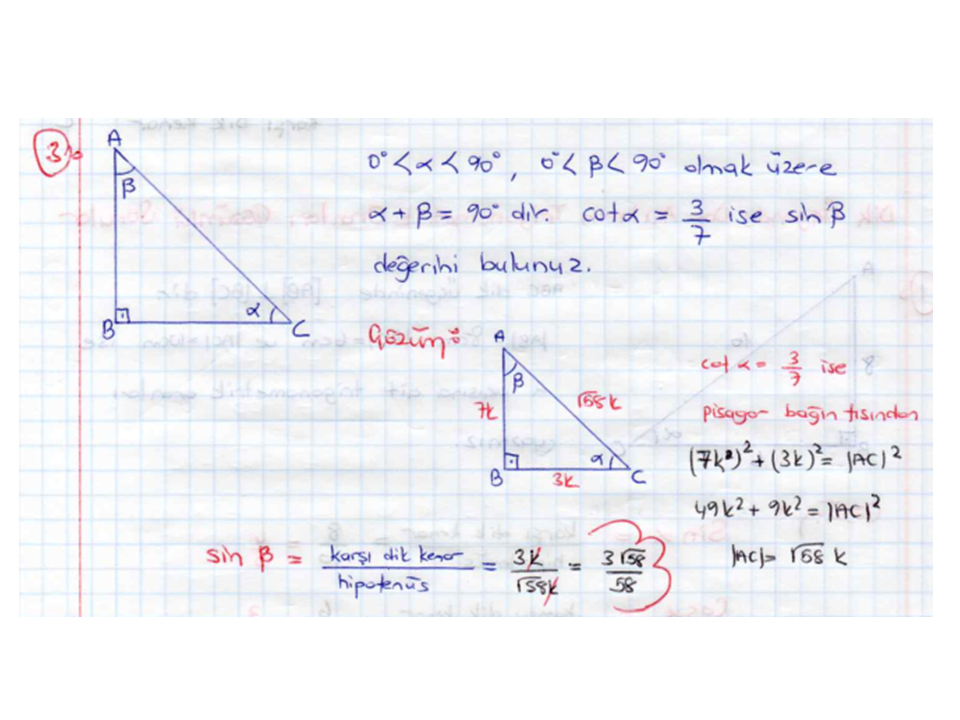 3)
A
β
B
α
C
0° < α < 90°, 0° < β < 90° olmak üzere
α + β = 90° dir. cotα = 3/7 ise sin β
değerini bulunuz.
Çözüm:
A
β
7k
√58 k
B
α
C
3k
cot α = 3/7 ise
pisagor bağıntısından
(7k)² + (3k)² = |AC|²
49k² + 9k² = |AC|²
|AC| = √58 k
sin β = karşı dik kenar / hipotenüs = 3k / √58k = 3√58 / 58